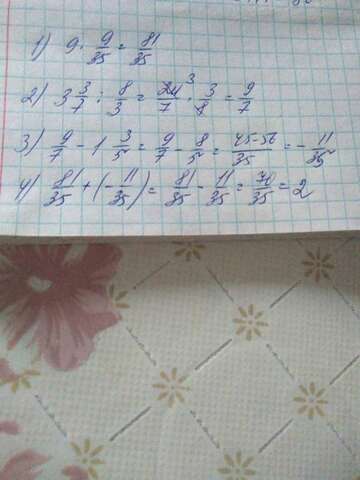 1) 9 · 9/35 = 81/35
2) 3 3/7 : 8/3 = 24/7 · 3/8 = 9/7
3) 9/7 - 1 3/5 = 9/7 - 8/5 = 45-56/35 = - 11/35
4) 81/35 + (- 11/35) = 81/35 - 11/35 = 70/35 = 2